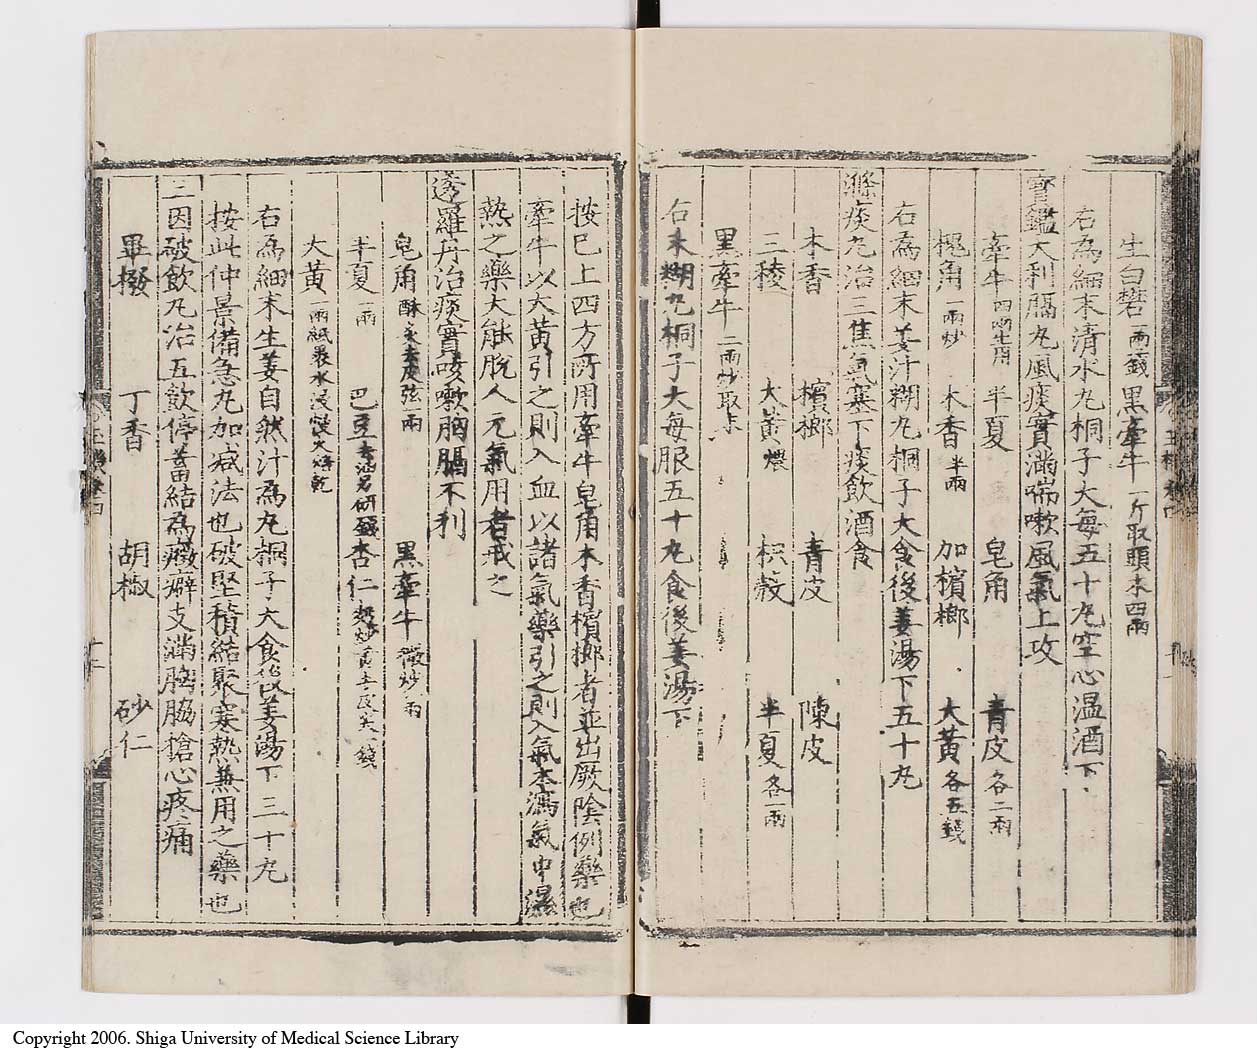 生白礬一兩 黑牽牛一斤取頭末四兩
右為細末清水丸桐子大每五十丸空心温酒下
寶鑑大利膈丸風痰實滿喘嗽風氣上攻
牽牛四兩生用 半夏 皂角 青皮各二兩
槐角一兩炒 木香半兩 加檳榔 大黃各五錢
右為細末姜汁糊丸桐子大食後姜湯下五十丸
滌痰丸治三焦氣塞下痰飲酒食
木香 檳榔 青皮 陳皮
三稜 大黃煨 枳殼 半夏各一兩
黑牽牛二兩炒取末
右末糊丸桐子大每服五十丸食後姜湯下
按已上四方所用牽牛皂角木香檳榔者並出厥陰例藥也
牽牛以大黃引之則入血以諸氣藥引之則入氣本瀉氣中濕
熱之藥大能脫人元氣用者戒之
透羅丹治痰實咳嗽胸膈不利
皂角酥炙去皮弦一兩 黑牽牛微炒一兩
半夏一兩 巴豆去油另研一錢 杏仁麩炒黃去皮尖一錢
大黃一兩紙裹水浸煨火焙乾
右為細末生姜自然汁為丸桐子大食後姜湯下三十丸
按此仲景備急丸加減法也破堅積結聚寒熱兼用之藥也
三因破飲丸治五飲停蓄結為癥癖支滿胸脇搶心疼痛
蓽撥 丁香 胡椒 砂仁
Copyright 2006. Shiga University of Medical Science Library